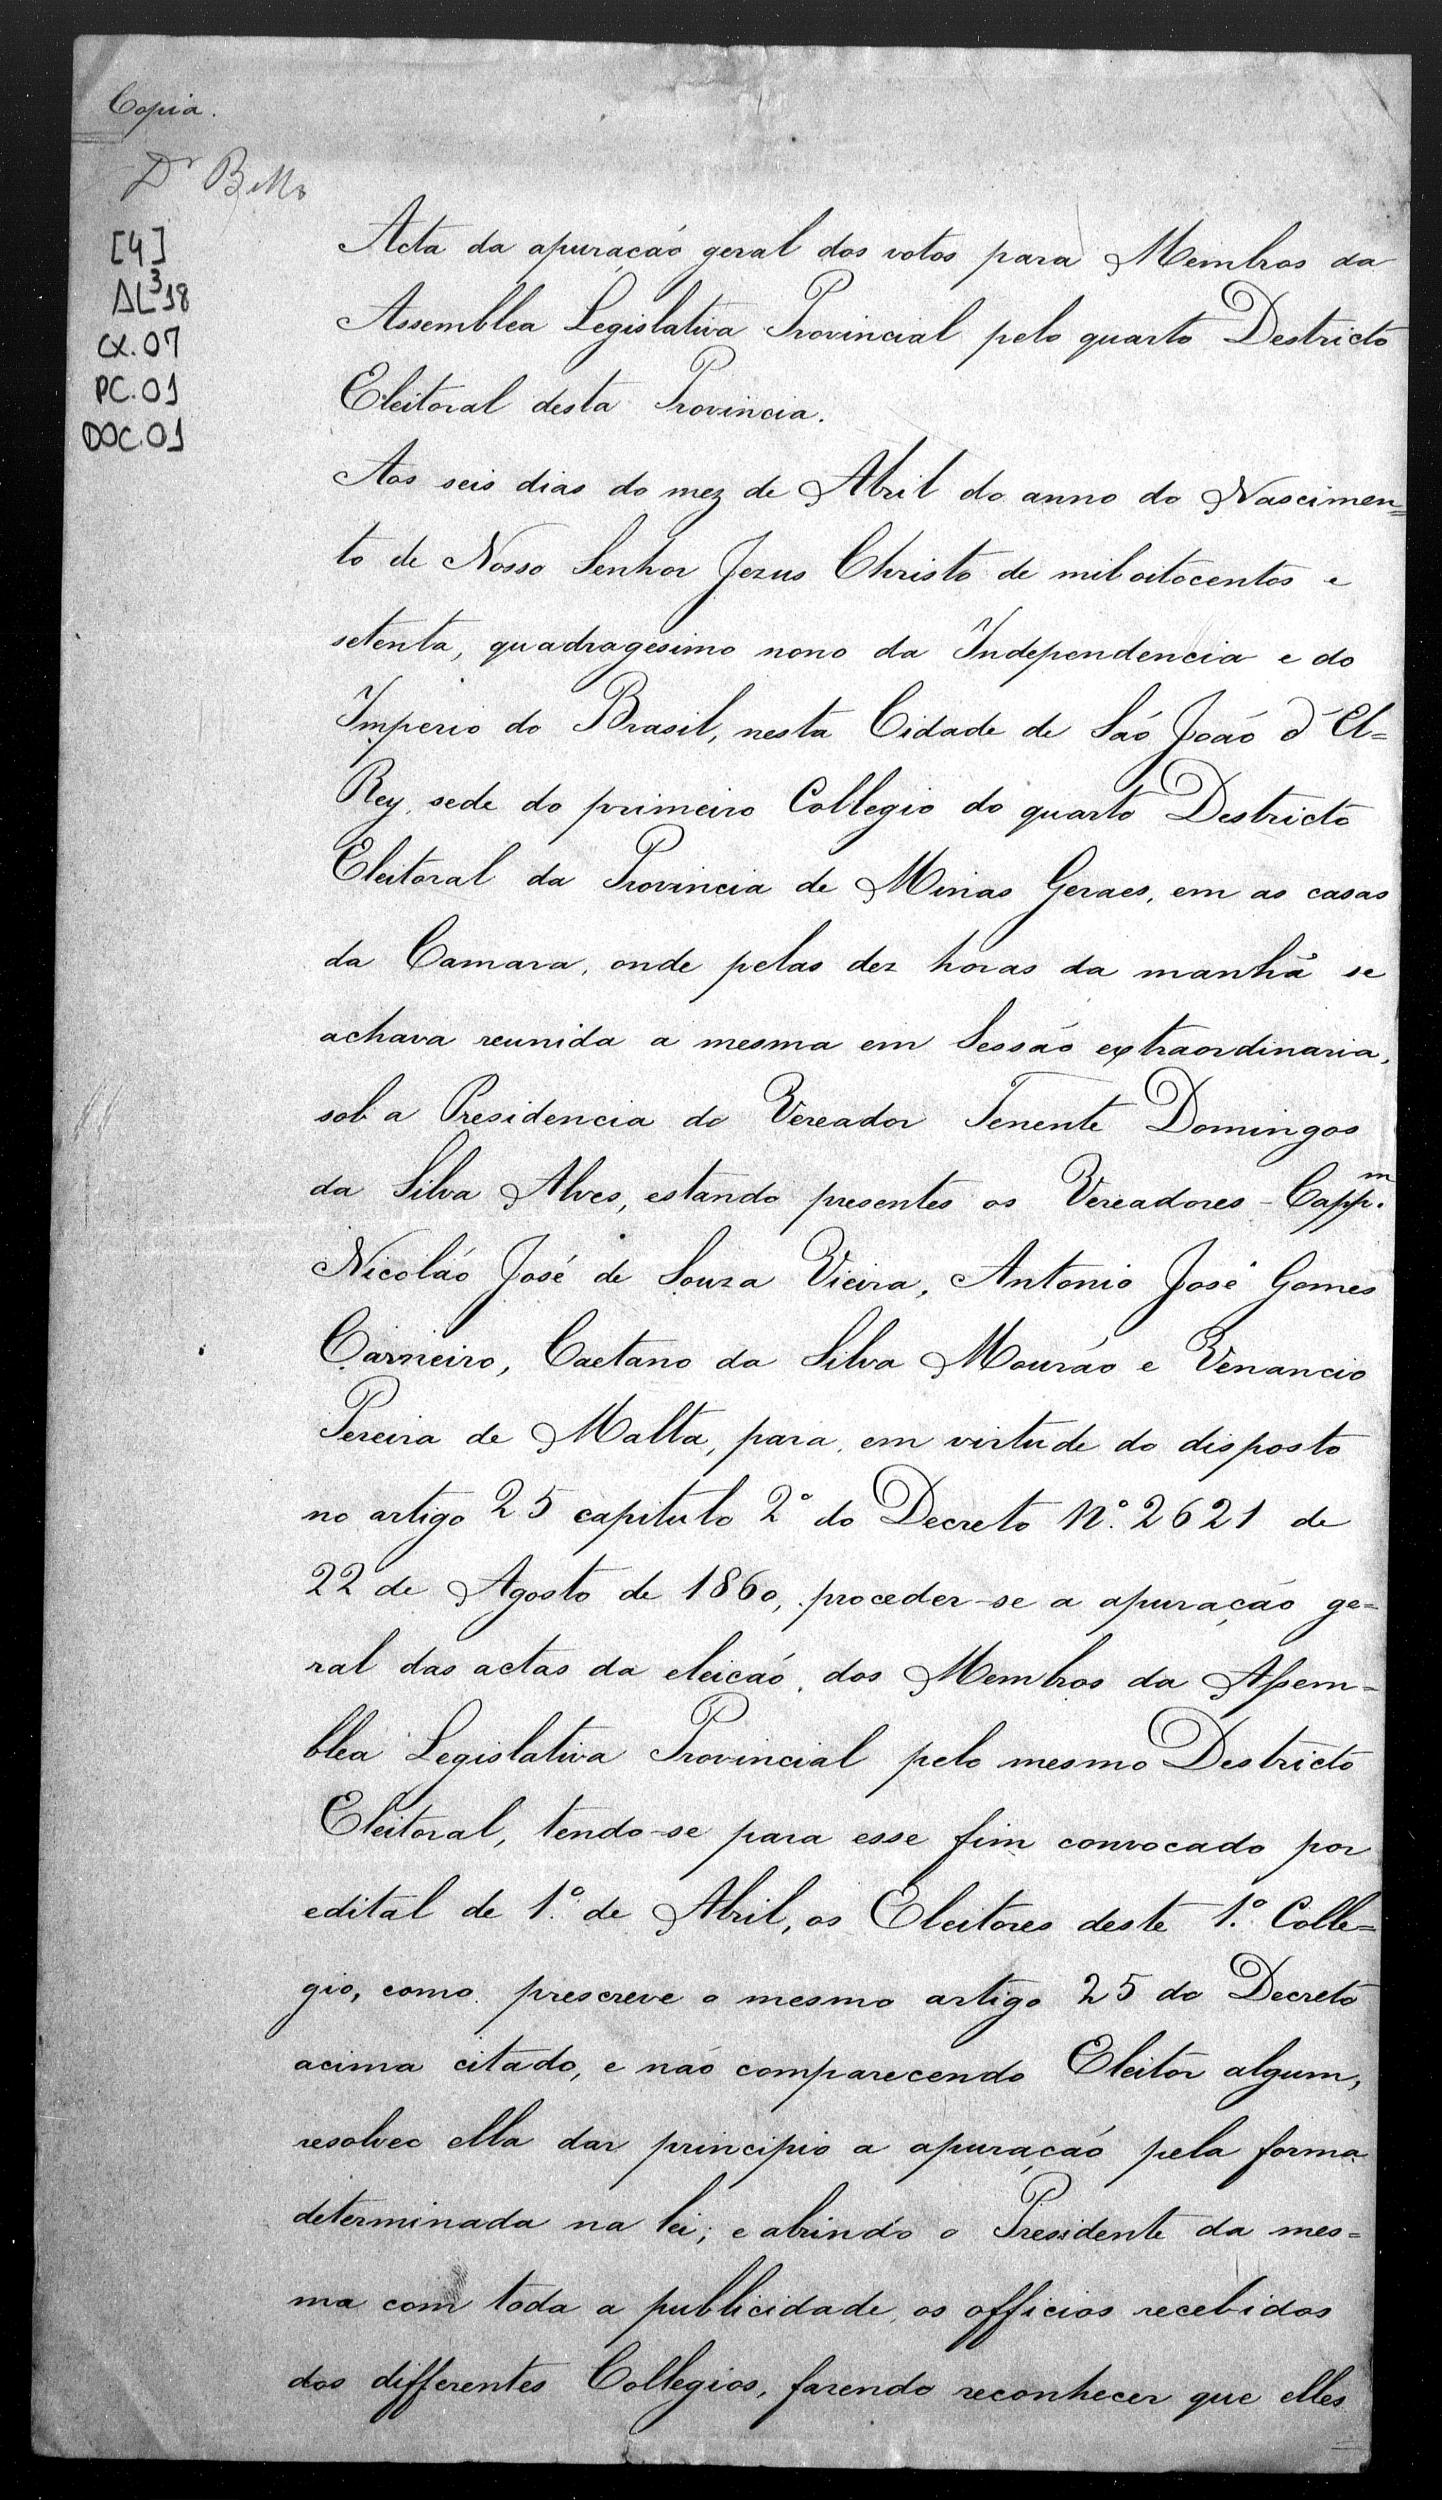 Copia.
Dr Bello
[4]
AL³18
CX.07
PC.01
DOC.01
Acta da apuração geral dos votos para Membros da
Assemblea Legislativa Provincial pelo quarto Destricto
Eleitoral desta Provincia.
Aos seis dias do mez de Abril do anno do Nascimen=
to de Nosso Senhor Jezus Christo de mil oitocentos e
setenta, quadragesimo nono da Independencia e do
Imperio do Brasil, nesta Cidade de São João d'El=
Rey, sede do primeiro Collegio do quarto Destricto
Eleitoral da Provincia de Minas Geraes, em as casas
da Camara, onde pelas dez horas da manhã se
achava reunida a mesma em Sessão extraordinaria,
sob a Presidencia do Vereador Tenente Domingos
da Silva Alves, estando presentes os Vereadores - Capp.m
Nicoláo José de Souza Vieira, Antonio José Gomes
Carneiro, Caetano da Silva Mourão e Venancio
Pereira de Malta, para, em virtude do disposto
no artigo 25 capitulo 2º do Decreto Nº. 2621 de
22 de Agosto de 1860, proceder-se a apuração ge=
ral das actas da eleição, dos Membros da Assem=
blea Legislativa Provincial pelo mesmo Destricto
Eleitoral, tendo-se para esse fim convocado por
edital de 1º. de Abril, os Eleitores deste 1º. Colle=
gio, como prescreve o mesmo artigo 25 do Decreto
acima citado, e não comparecendo Eleitor algum,
resolveo ella dar principio a apuração pela forma
determinada na lei; e abrindo o Presidente da mes=
ma com toda a publicidade, os officios recebidos
dos differentes Collegios, fazendo reconhecer que elles